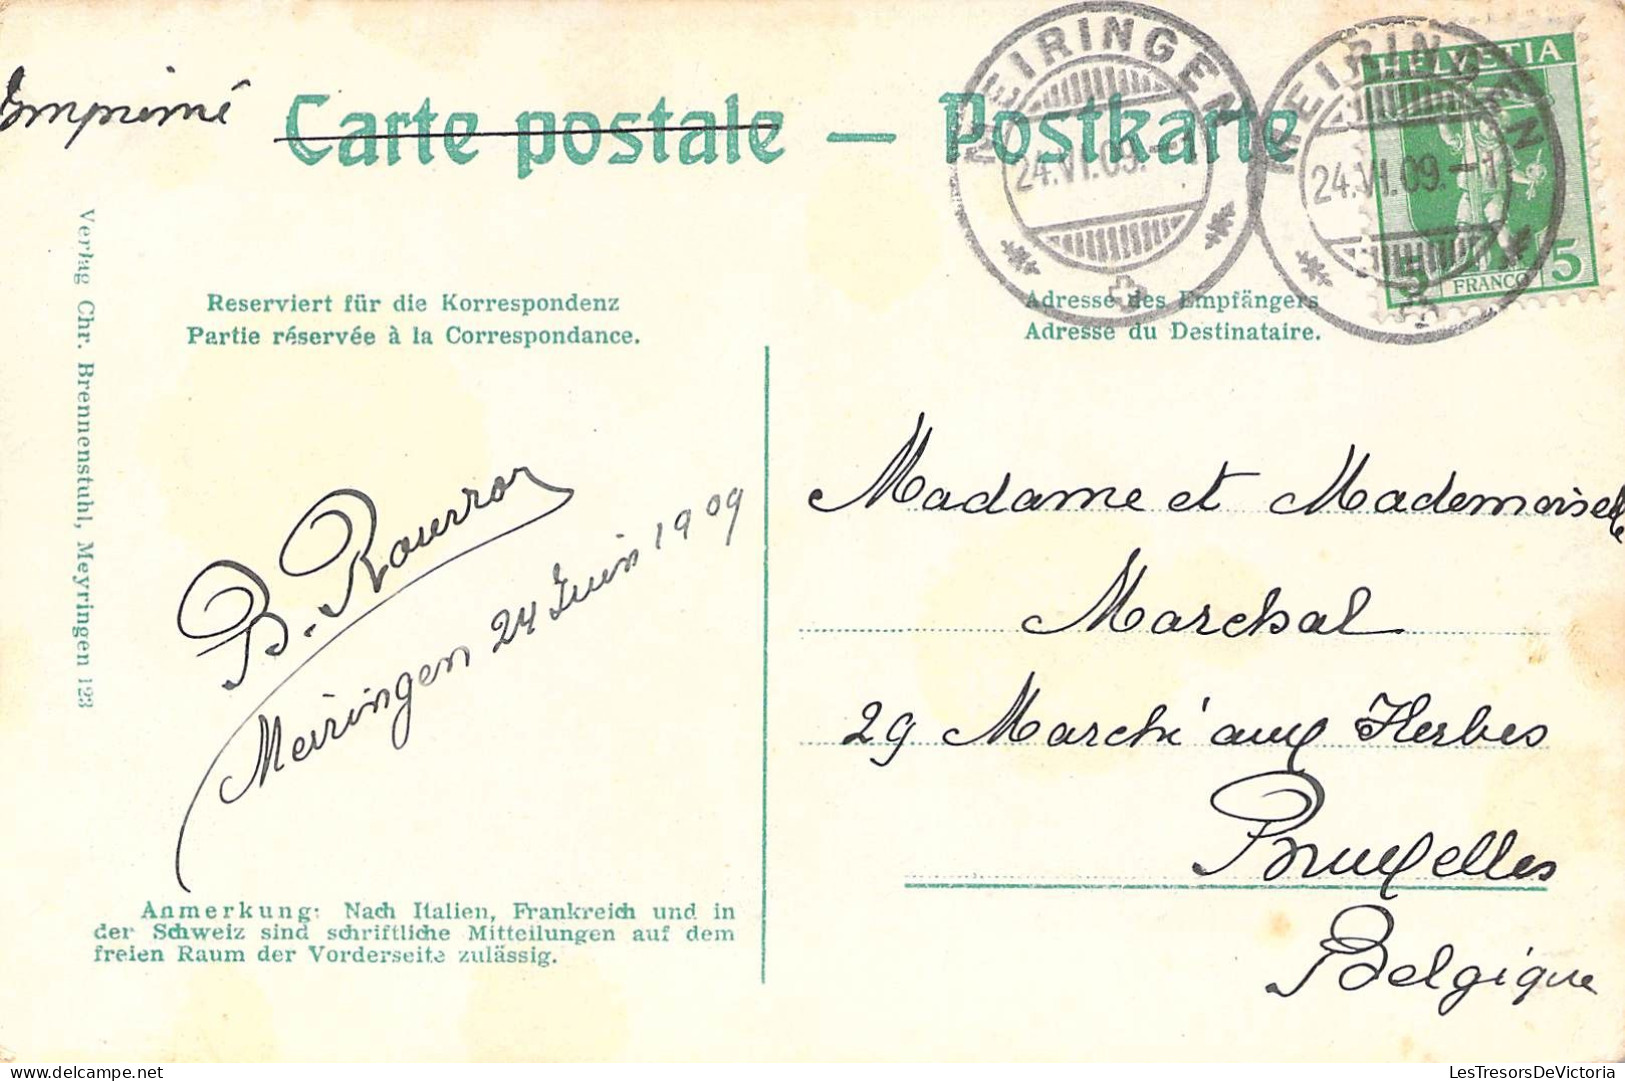 Imprimé
Carte postale — Postkarte
MEIRINGEN
24.VI.09.–1
MEIRINGEN
24.VI.09.–1
HELVETIA
5 FRANCO 5
Reserviert für die Korrespondenz
Partie réservée à la Correspondance.
Adresse des Empfängers
Adresse du Destinataire.
Verlag Chr. Brennenstuhl, Meyringen 123
Meiringen 24 Juin 1909
Madame et Mademoiselle
Marchal
29 Marché aux Herbes
Bruxelles
Belgique
Anmerkung: Nach Italien, Frankreich und in
der Schweiz sind schriftliche Mitteilungen auf dem
freien Raum der Vorderseite zulässig.
LesTresorsDeVictoria